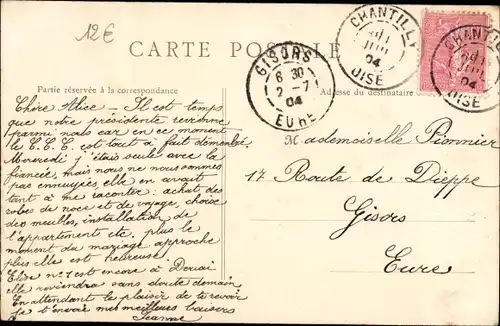 12€
CARTE POSTALE
CHANTILLY
JUIL
04
OISE
CHANTILLY
JUIL
04
OISE
GISORS
6 30
2 - 7
04
EURE
Partie réservée à la correspondance
Adresse du destinataire
Chère Alice - Il est temps
que notre présidente revienne
parmi nous car en ce moment
le C.C.C. est tout à fait démembré
Mercredi j'étais seule avec la
fiancée, mais nous ne nous sommes
pas ennuyées, elle en avait
tant à me raconter: achat des
robes de noce et de voyage, choix
des meubles, installation de
l'appartement etc. plus le
moment du mariage approche
plus elle est heureuse.
Elise n° 1 est encore à Douai
elle reviendra sans doute demain.
En attendant le plaisir de te revoir
je t'envoie mes meilleurs baisers
Jeanne
Mademoiselle Pionnier
17 Route de Dieppe
Gisors
Eure